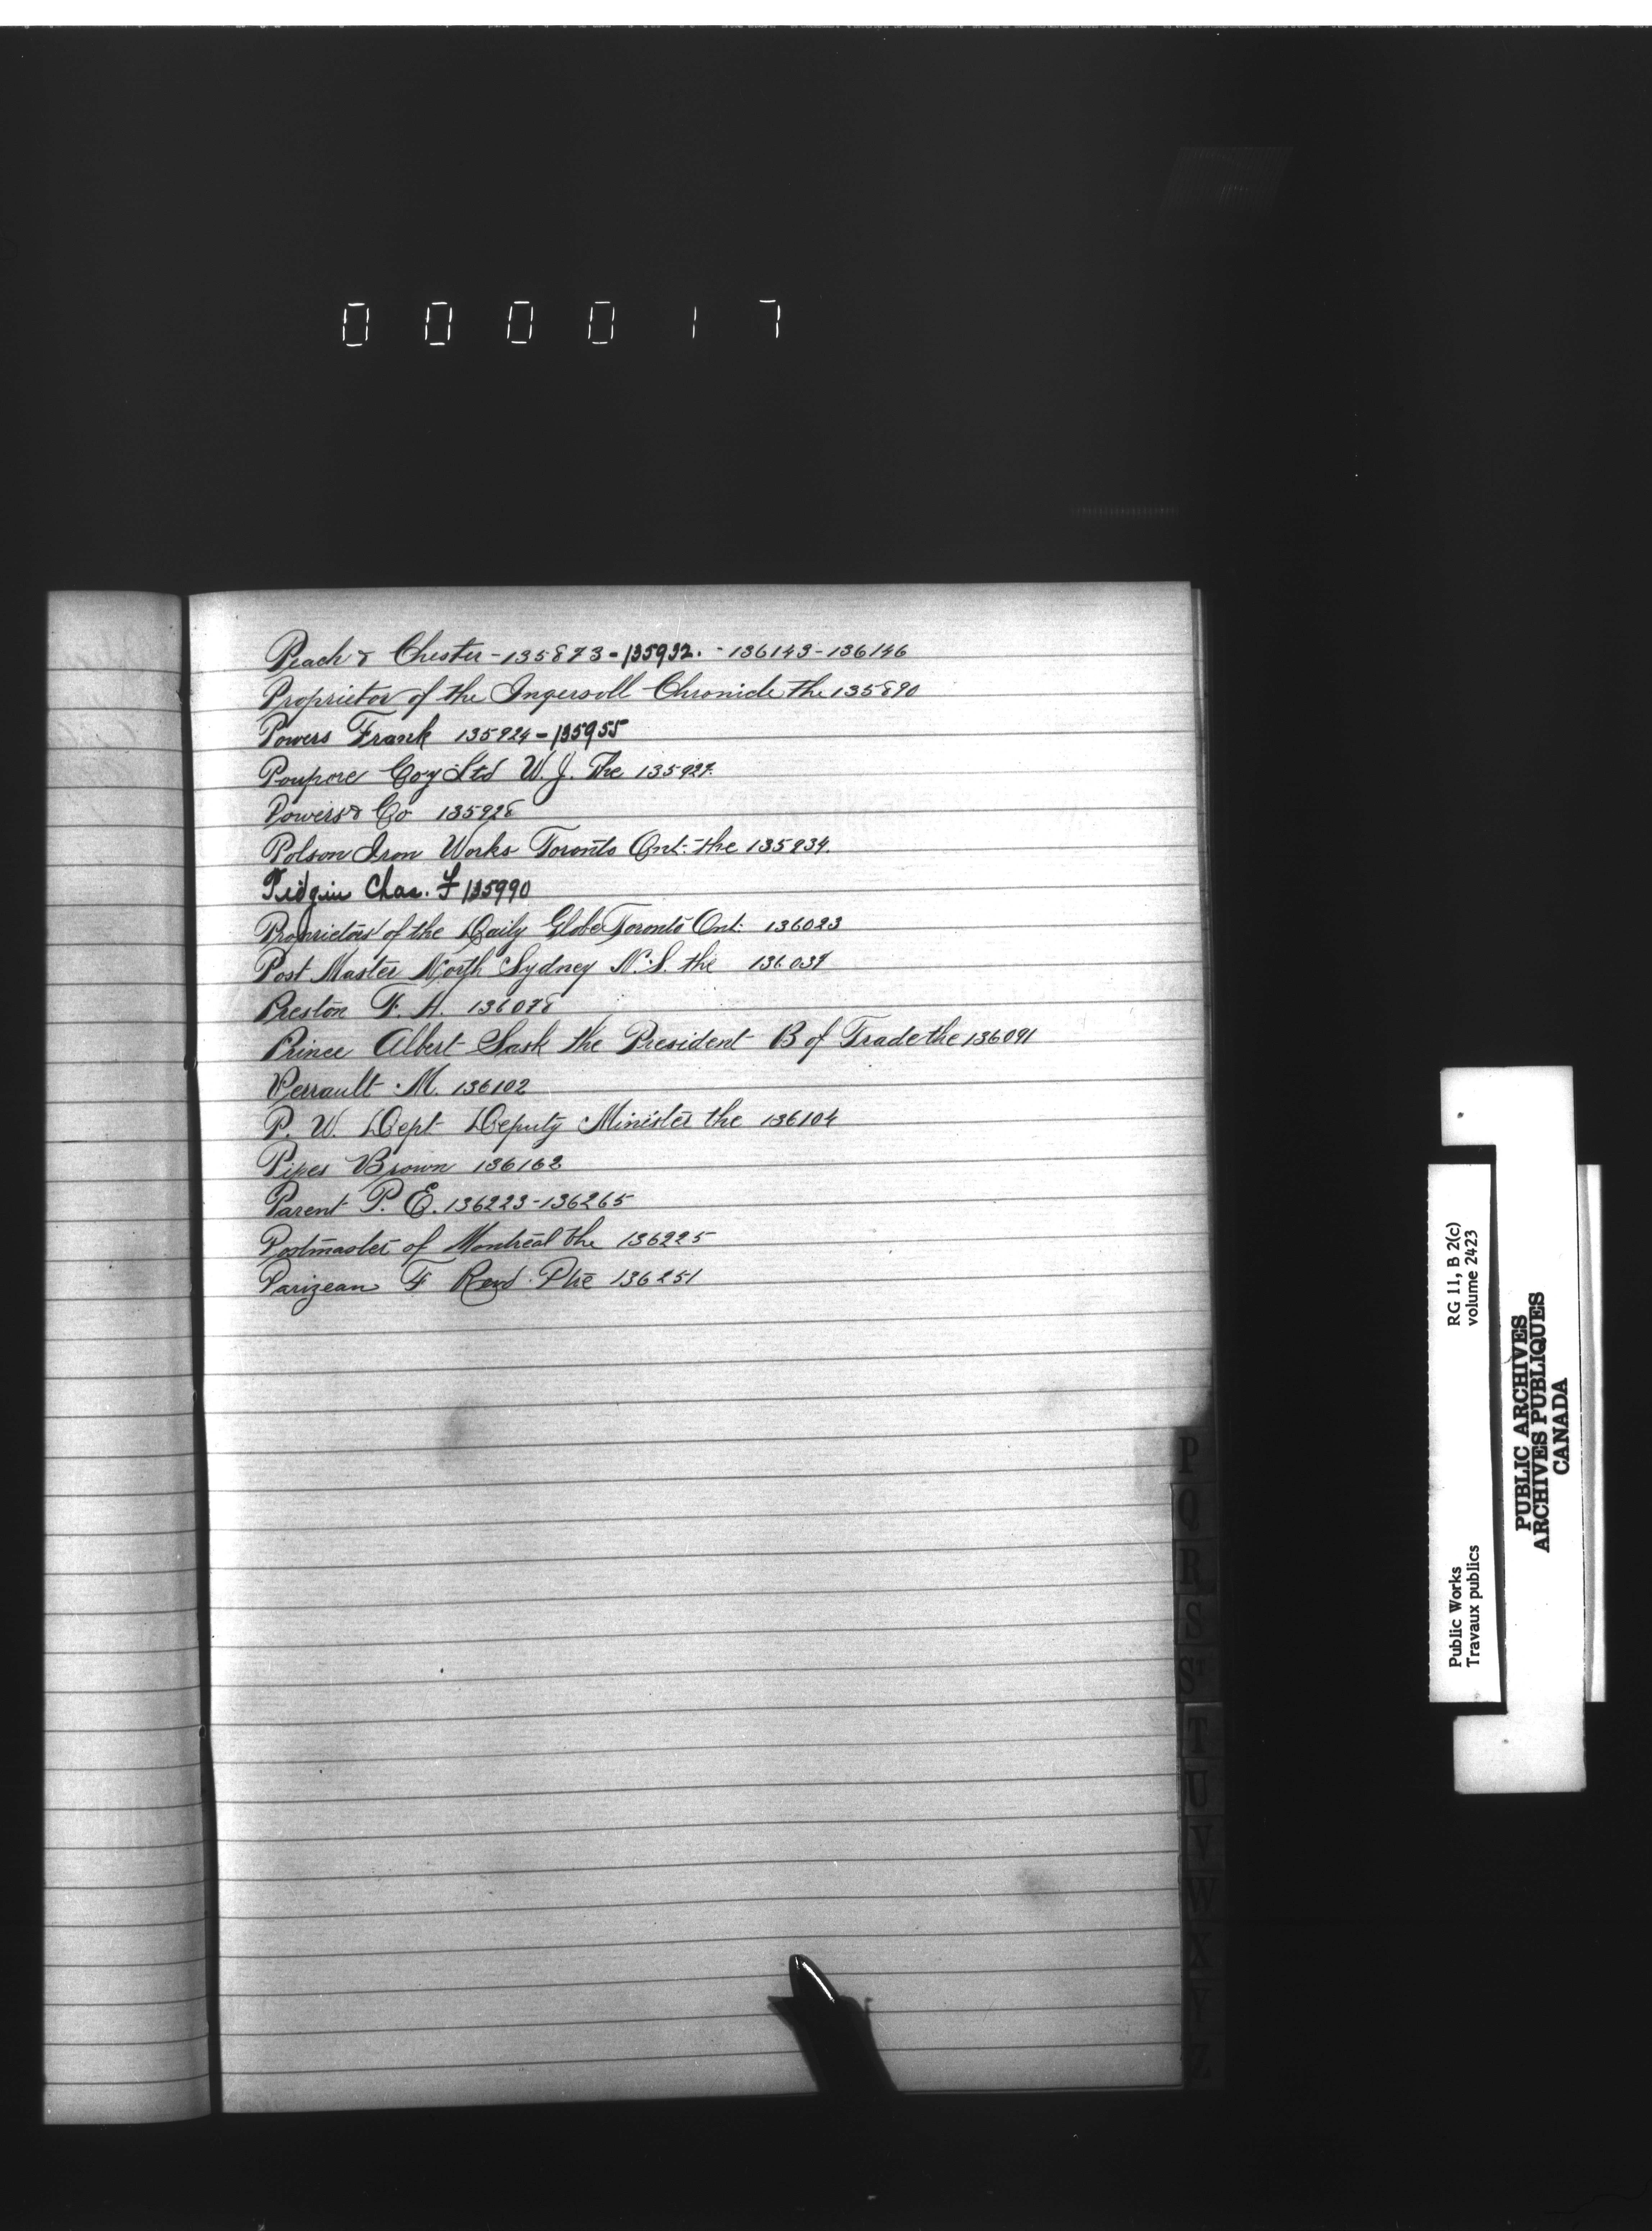 000017
Peach & Chester - 135873 - 135932. - 136143 - 136146
Proprietor of the Ingersoll Chronicle the 135890
Powers Frank 135924 - 135955
Poupore Coy Ltd W. J. The 135927.
Powers & Co 135928
Polson Iron Works Toronto Ont: the 135934.
Pidgin Chas. F 135990
Proprietors of the Daily Globe Toronto Ont: 136023
Post Master North Sydney N.S. the 136039
Preston F. A. 136078
Prince Albert Sask the President B of Trade the 136091
Perrault M. 136102
P. W. Dept Deputy Minister the 136104
Pipes Brown 136162
Parent P. E. 136223 - 136265
Postmaster of Montreal the 136225
Parizeau F Revd. Ptre 136251
P
Q
R
S
S
T
U
V
W
X
Y
Z
Public Works
Travaux publics
RG 11, B 2(c)
volume 2423
PUBLIC ARCHIVES
ARCHIVES PUBLIQUES
CANADA